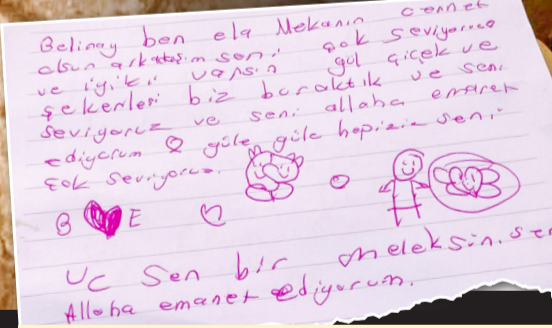 Belinay ben ela Mekanın cennet
olsun arkataşım seni çok seviyoruz
ve iyiki varsın gül çiçek ve
şekerleri biz buraktık ve seni
seviyoruz ve seni allaha emanet
ediyorum güle güle hepizin seni
çok seviyoruz.
B E
UC Sen bir meleksin. sen
Allaha emanet ediyorum.